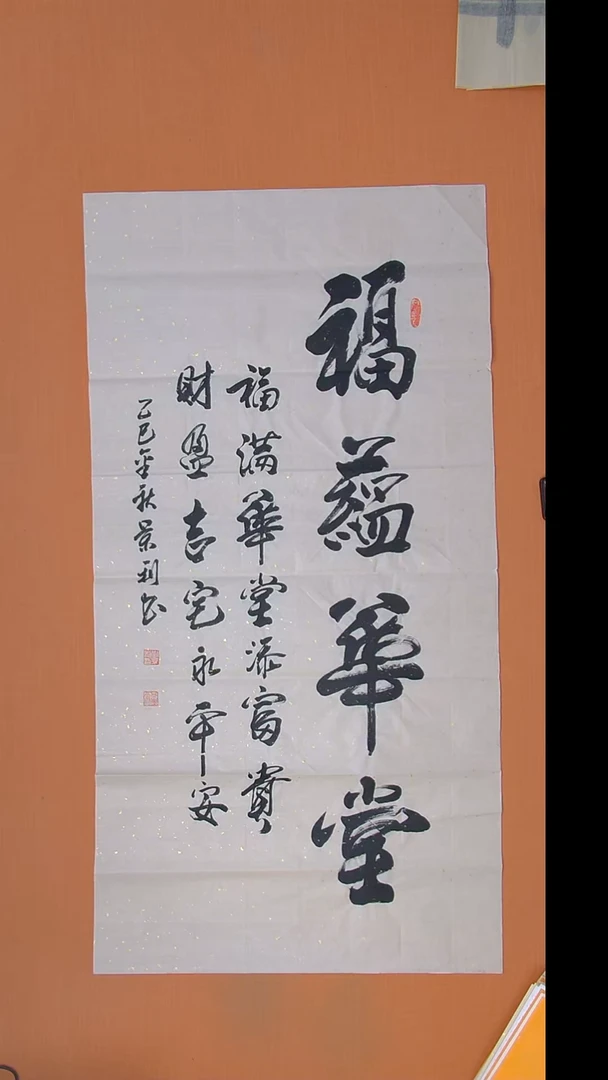 福蕴華堂
福满華堂添富貴
財盈吉宅永平安
乙巳金秋景利书